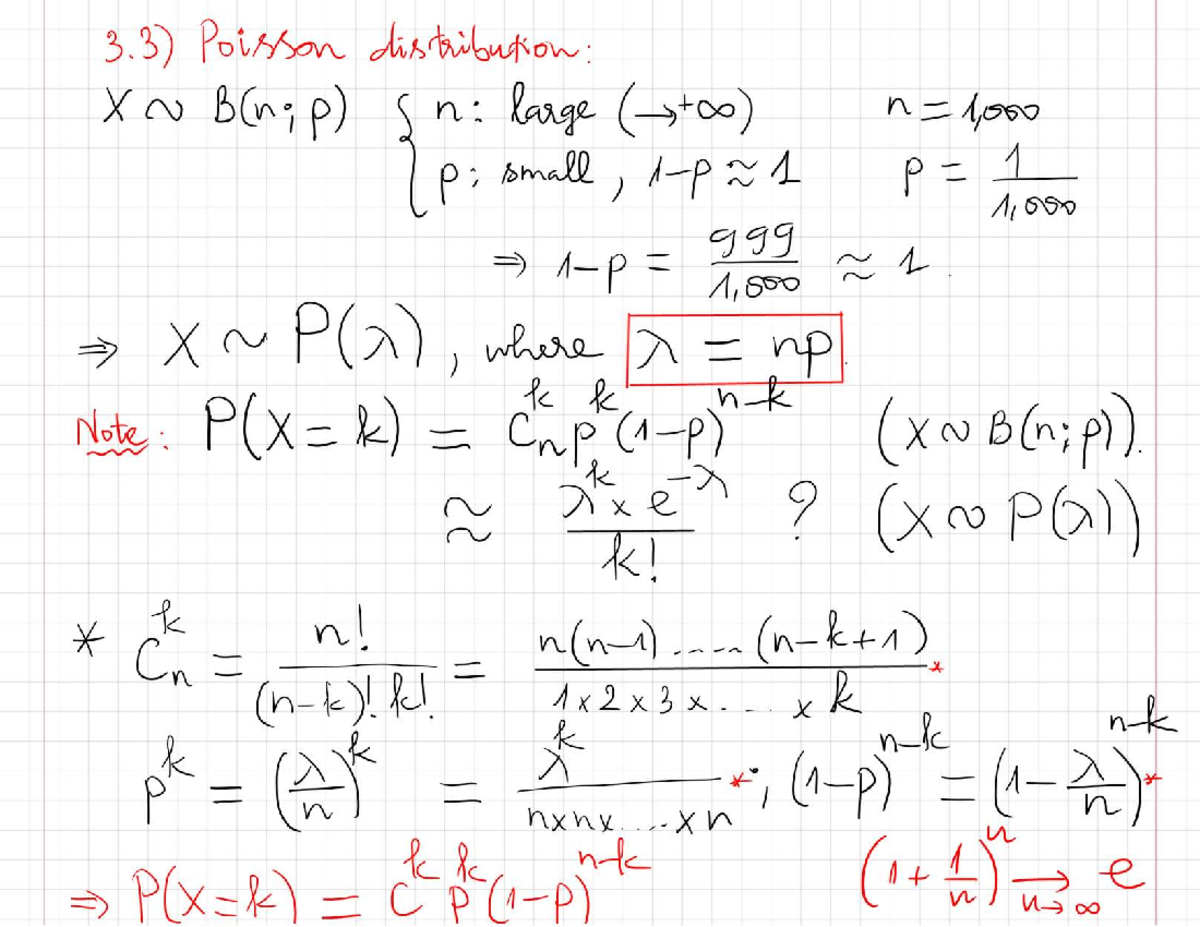 3.3) Poisson distribution:
X ~ B(n; p) { n: large (→+∞) n = 1,000
p: small, 1-p ≈ 1 p = 1/1,000
⇒ 1-p = 999/1,000 ≈ 1.
⇒ X ~ P(λ), where λ = np.
Note: P(X = k) = C_n^k p^k (1-p)^{n-k} (X ~ B(n; p)).
≈ (λ^k × e^{-λ})/k! ? (X ~ P(λ))
* C_n^k = n!/((n-k)! k!) = (n(n-1).....(n-k+1))/(1×2×3×....×k) *
p^k = (λ/n)^k = λ^k/(n×n×.....×n) *; (1-p)^{n-k} = (1-λ/n)^{n-k} *
⇒ P(X=k) = C^k p^k (1-p)^{n-k} (1+1/n)^n →_{n→∞} e